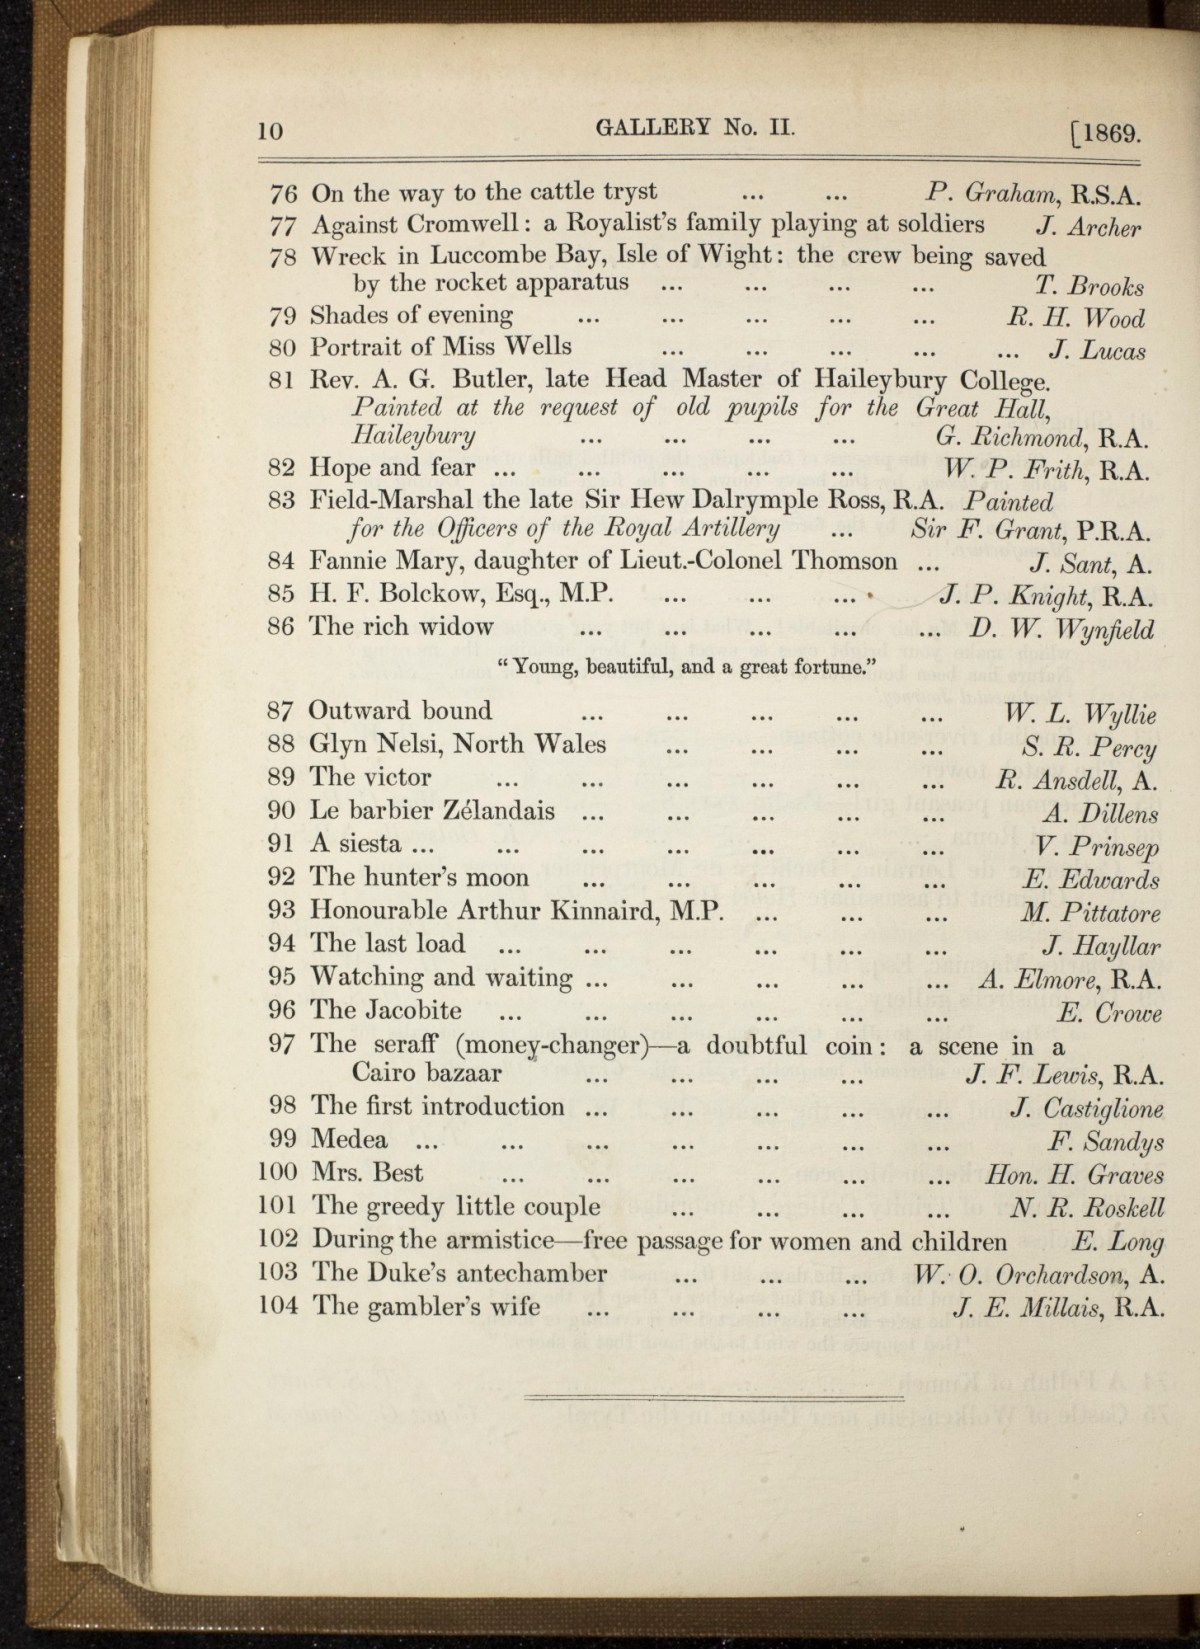 10 GALLERY No. II. [1869.
76 On the way to the cattle tryst ... ... P. Graham, R.S.A.
77 Against Cromwell: a Royalist's family playing at soldiers J. Archer
78 Wreck in Luccombe Bay, Isle of Wight: the crew being saved
by the rocket apparatus ... ... ... ... T. Brooks
79 Shades of evening ... ... ... ... ... R. H. Wood
80 Portrait of Miss Wells ... ... ... ... ... J. Lucas
81 Rev. A. G. Butler, late Head Master of Haileybury College.
Painted at the request of old pupils for the Great Hall,
Haileybury ... ... ... ... G. Richmond, R.A.
82 Hope and fear ... ... ... ... ... W. P. Frith, R.A.
83 Field-Marshal the late Sir Hew Dalrymple Ross, R.A. Painted
for the Officers of the Royal Artillery ... Sir F. Grant, P.R.A.
84 Fannie Mary, daughter of Lieut.-Colonel Thomson ... J. Sant, A.
85 H. F. Bolckow, Esq., M.P. ... ... ... J. P. Knight, R.A.
86 The rich widow ... ... ... ... ... D. W. Wynfield
"Young, beautiful, and a great fortune."
87 Outward bound ... ... ... ... ... W. L. Wyllie
88 Glyn Nelsi, North Wales ... ... ... ... S. R. Percy
89 The victor ... ... ... ... ... ... R. Ansdell, A.
90 Le barbier Zélandais ... ... ... ... ... A. Dillens
91 A siesta ... ... ... ... ... ... ... V. Prinsep
92 The hunter's moon ... ... ... ... ... E. Edwards
93 Honourable Arthur Kinnaird, M.P. ... ... ... M. Pittatore
94 The last load ... ... ... ... ... ... J. Hayllar
95 Watching and waiting ... ... ... ... ... A. Elmore, R.A.
96 The Jacobite ... ... ... ... ... ... E. Crowe
97 The seraff (money-changer)—a doubtful coin: a scene in a
Cairo bazaar ... ... ... ... J. F. Lewis, R.A.
98 The first introduction ... ... ... ... ... J. Castiglione
99 Medea ... ... ... ... ... ... ... F. Sandys
100 Mrs. Best ... ... ... ... ... ... Hon. H. Graves
101 The greedy little couple ... ... ... ... N. R. Roskell
102 During the armistice—free passage for women and children E. Long
103 The Duke's antechamber ... ... ... W. O. Orchardson, A.
104 The gambler's wife ... ... ... ... J. E. Millais, R.A.